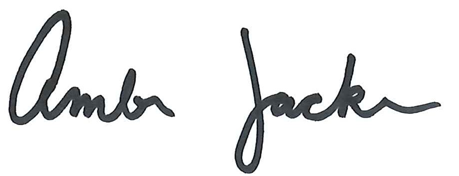 Amber Jacks